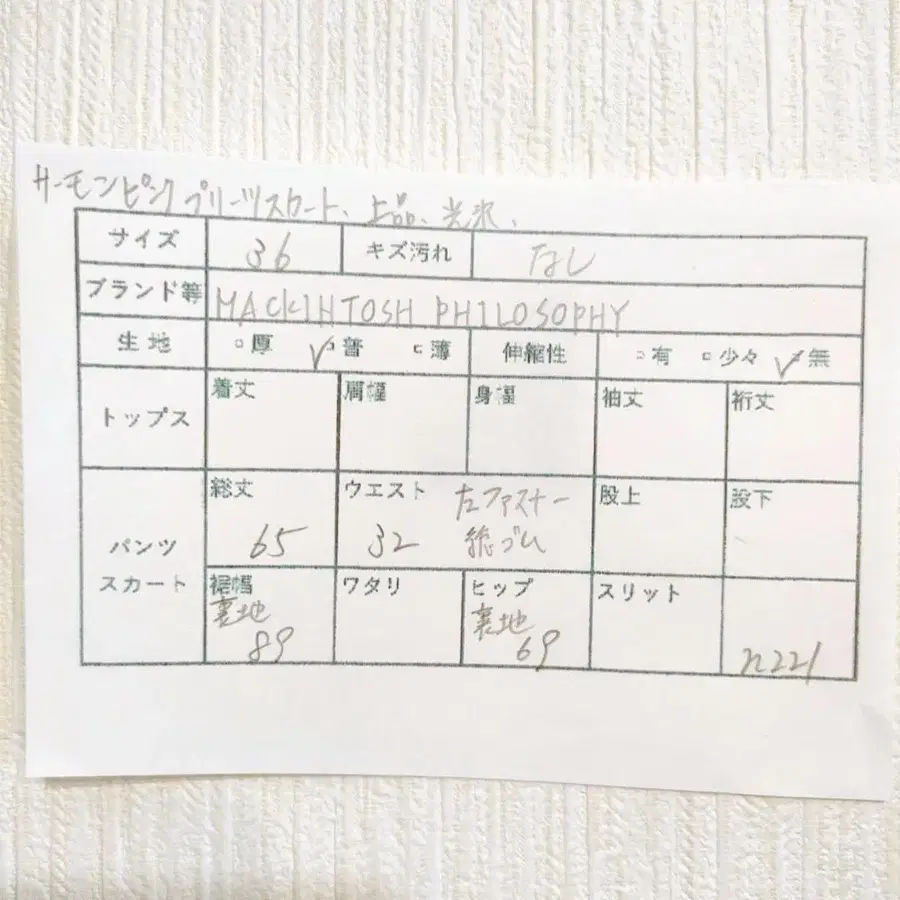 サーモンピンクプリーツスカート、上品、光沢、
サイズ 36 キズ汚れ なし
ブランド等 MACKINTOSH PHILOSOPHY
生地 □厚 ✓□普 □薄 伸縮性 □有 □少々 ✓□無
トップス 着丈 肩幅 身幅 袖丈 裄丈
パンツ スカート 総丈 65 ウエスト 32 左ファスナー 総ゴム 股上 股下
裾幅 裏地 89 ワタリ ヒップ 裏地 69 スリット n221